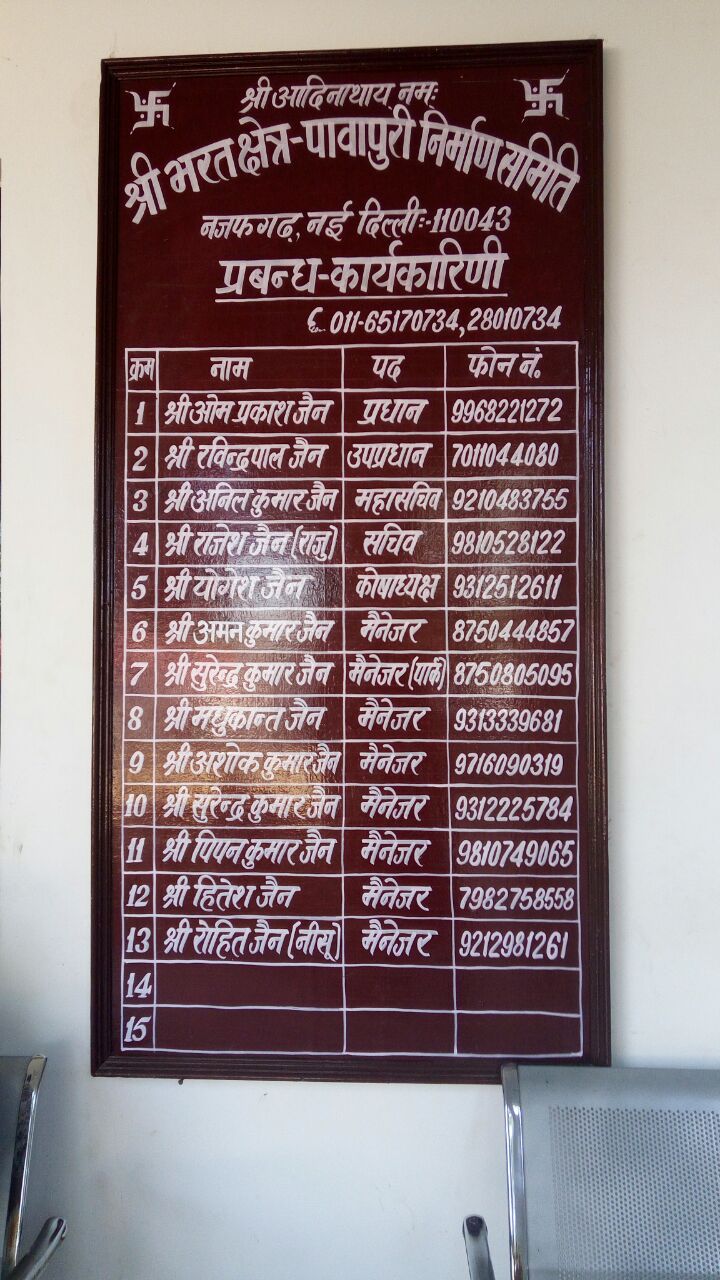 श्री आदिनाथाय नमः
श्री भरतक्षेत्र-पावापुरी निर्माण समिति
नजफगढ़, नई दिल्लीः-110043
प्रबन्ध-कार्यकारिणी
011-65170734, 28010734
क्रम नाम पद फोन नं.
1 श्री ओम प्रकाश जैन प्रधान 9968221272
2 श्री रविन्द्रपाल जैन उपप्रधान 7011044080
3 श्री अनिल कुमार जैन महासचिव 9210483755
4 श्री राजेश जैन (राजु) सचिव 9810528122
5 श्री योगेश जैन कोषाध्यक्ष 9312512611
6 श्री अमन कुमार जैन मैनेजर 8750444857
7 श्री सुरेन्द्र कुमार जैन मैनेजर (पार्क) 8750805095
8 श्री मधुकान्त जैन मैनेजर 9313339681
9 श्री अशोक कुमार जैन मैनेजर 9716090319
10 श्री सुरेन्द्र कुमार जैन मैनेजर 9312225784
11 श्री पिपन कुमार जैन मैनेजर 9810749065
12 श्री हितेश जैन मैनेजर 7982758558
13 श्री रोहित जैन (नीसू) मैनेजर 9212981261
14
15